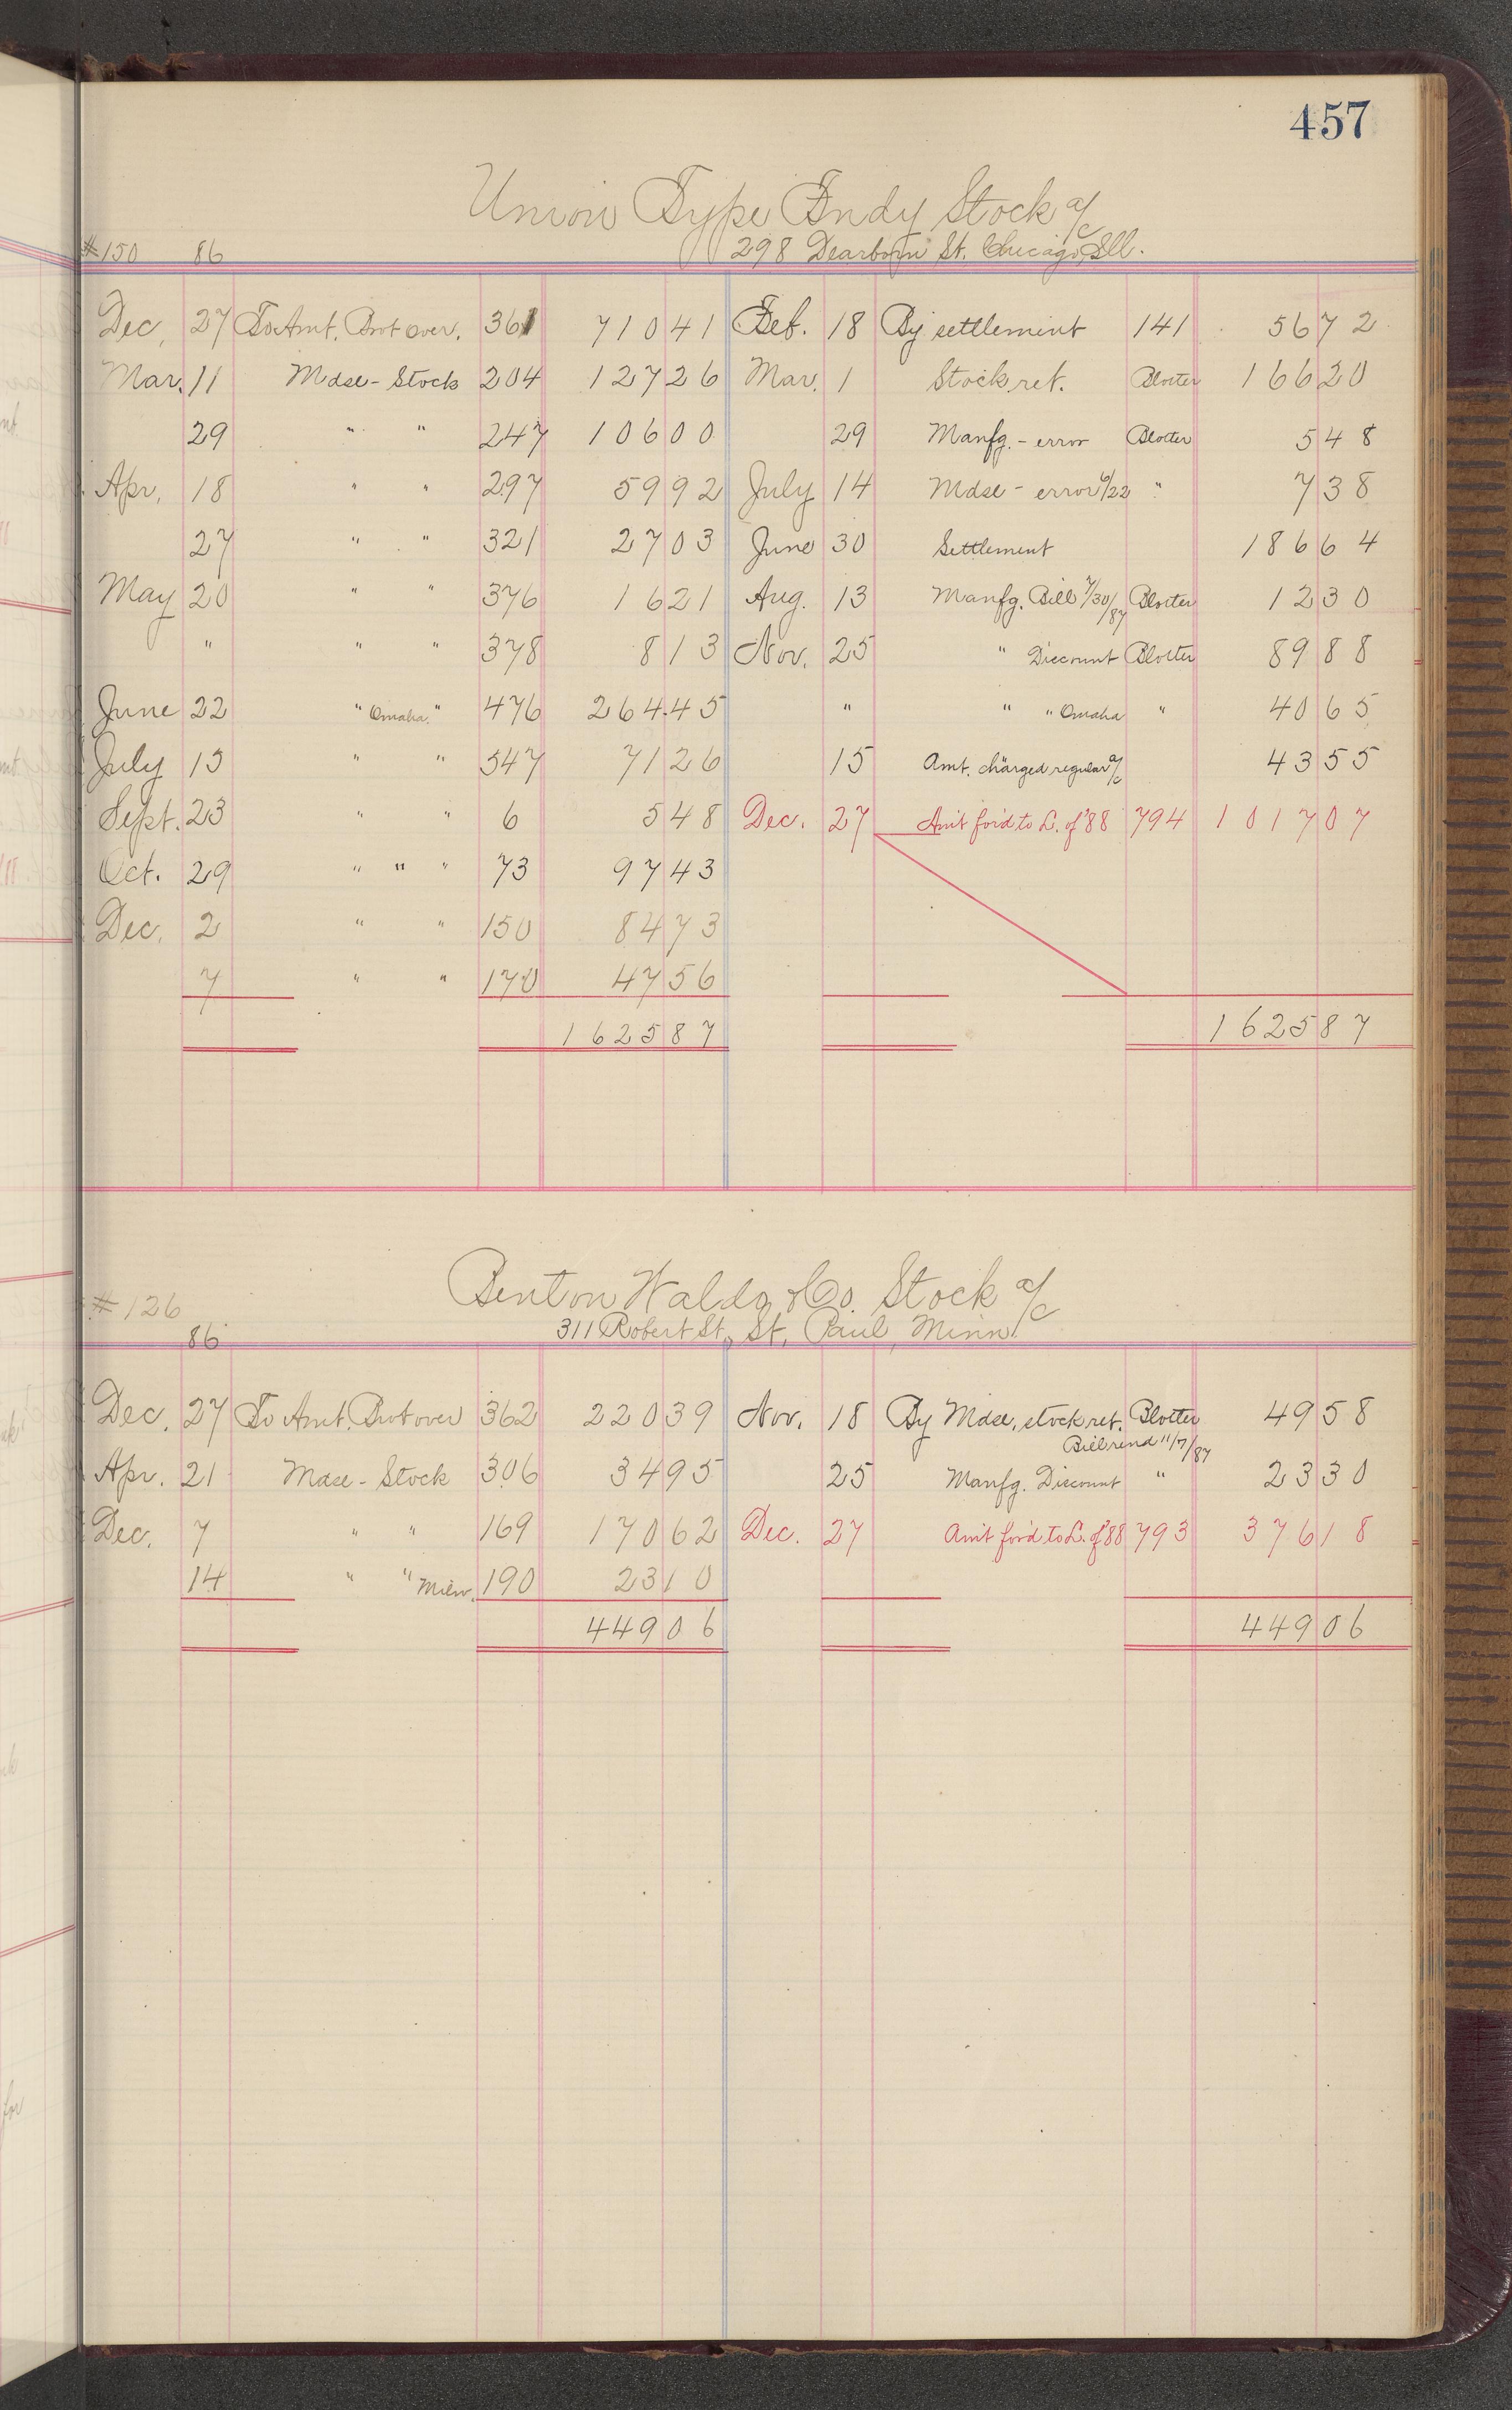 457
Union Type Fndy Stock a/c
#150 86 298 Dearborn St. Chicago, Ill.
Dec. 27 To Amt. Brot over. 361 710 41 Feb. 18 By settlement 141 56 72
Mar. 11 Mdse - Stock 204 127 26 Mar. 1 Stock ret. Blotter 166 20
29 " " 247 106 00 29 Manfg. - error Blotter 5 48
Apr. 18 " " 297 59 92 July 14 Mdse - error 6/22 " 7 38
27 " " 321 27 03 June 30 Settlement 186 64
May 20 " " 376 16 21 Aug. 13 Manfg. Bill 7/30/87 Blotter 12 30
" " " 378 8 13 Nov. 25 " Discount Blotter 89 88
June 22 " Omaha " 476 264.45 " " " Omaha " 40 65
July 15 " " 547 71 26 15 Amt. charged regular a/c 43 55
Sept. 23 " " 6 5 48 Dec. 27 Am't for'd to L. of '88 794 1017 07
Oct. 29 " " " 73 97 43
Dec. 2 " " 150 84 73
7 " " 170 47 56
1625 87 1625 87
Benton Waldo & Co. Stock a/c
#126
86 311 Robert St., St. Paul, Minn.
Dec. 27 To Amt. Brot over 362 220 39 Nov. 18 By Mdse. stock ret. Blotter 49 58
Bill rend 11/7/87
Apr. 21 Mdse - Stock 306 34 95 25 Manfg. Discount " 23 30
Dec. 7 " " 169 170 62 Dec. 27 Am't for'd to L. of '88 793 376 18
14 " " Milw. 190 23 10
449 06 449 06